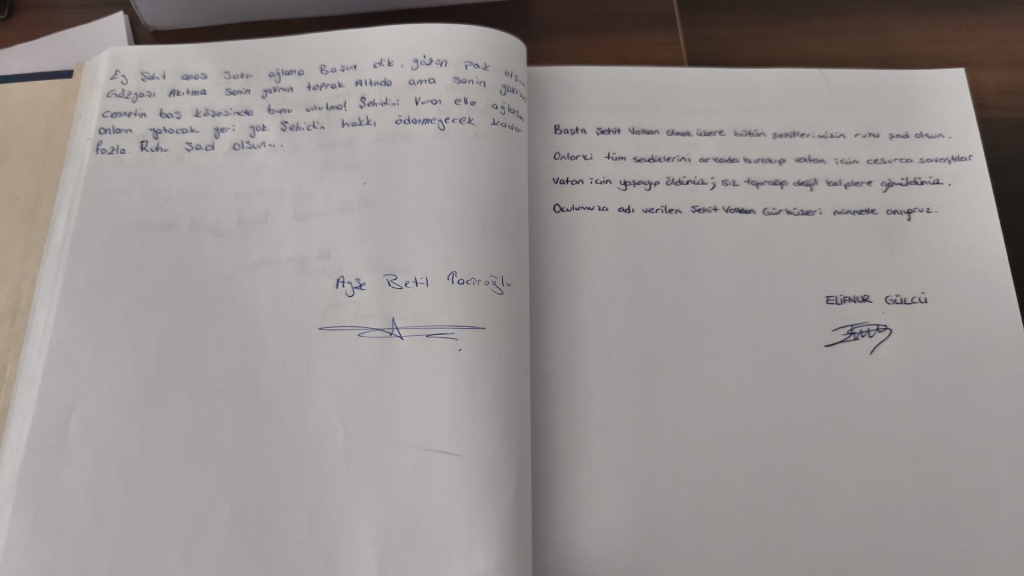 Ey Şehit anası Sakın ağlama Başın dik, gözün pak olsun
Gözyaşı Akıtma senin yavrun toprak Altında ama senin yavrun
cennetin baş köşesinde bunu unutma! Şehidini Vuran eller ağlasın
onların yatacak yeri yok Şehidin hakkı ödenmeyecek kadar
fazla Ruhu Şad olsun...
Ayşe Betül
Başta Şehit Volkan olmak üzere bütün şehitlerimizin ruhu şad olsun.
Onlarki tüm sevdiklerini arkada bırakıp vatan için cesurca savaştılar
Vatan için yaşayıp öldünüz; siz toprağa değil kalplere gömüldünüz.
Okulumuza adı verilen Şehit Volkan Gürbüzer'i minnetle anıyoruz.
ELİFNUR GÜLCÜ